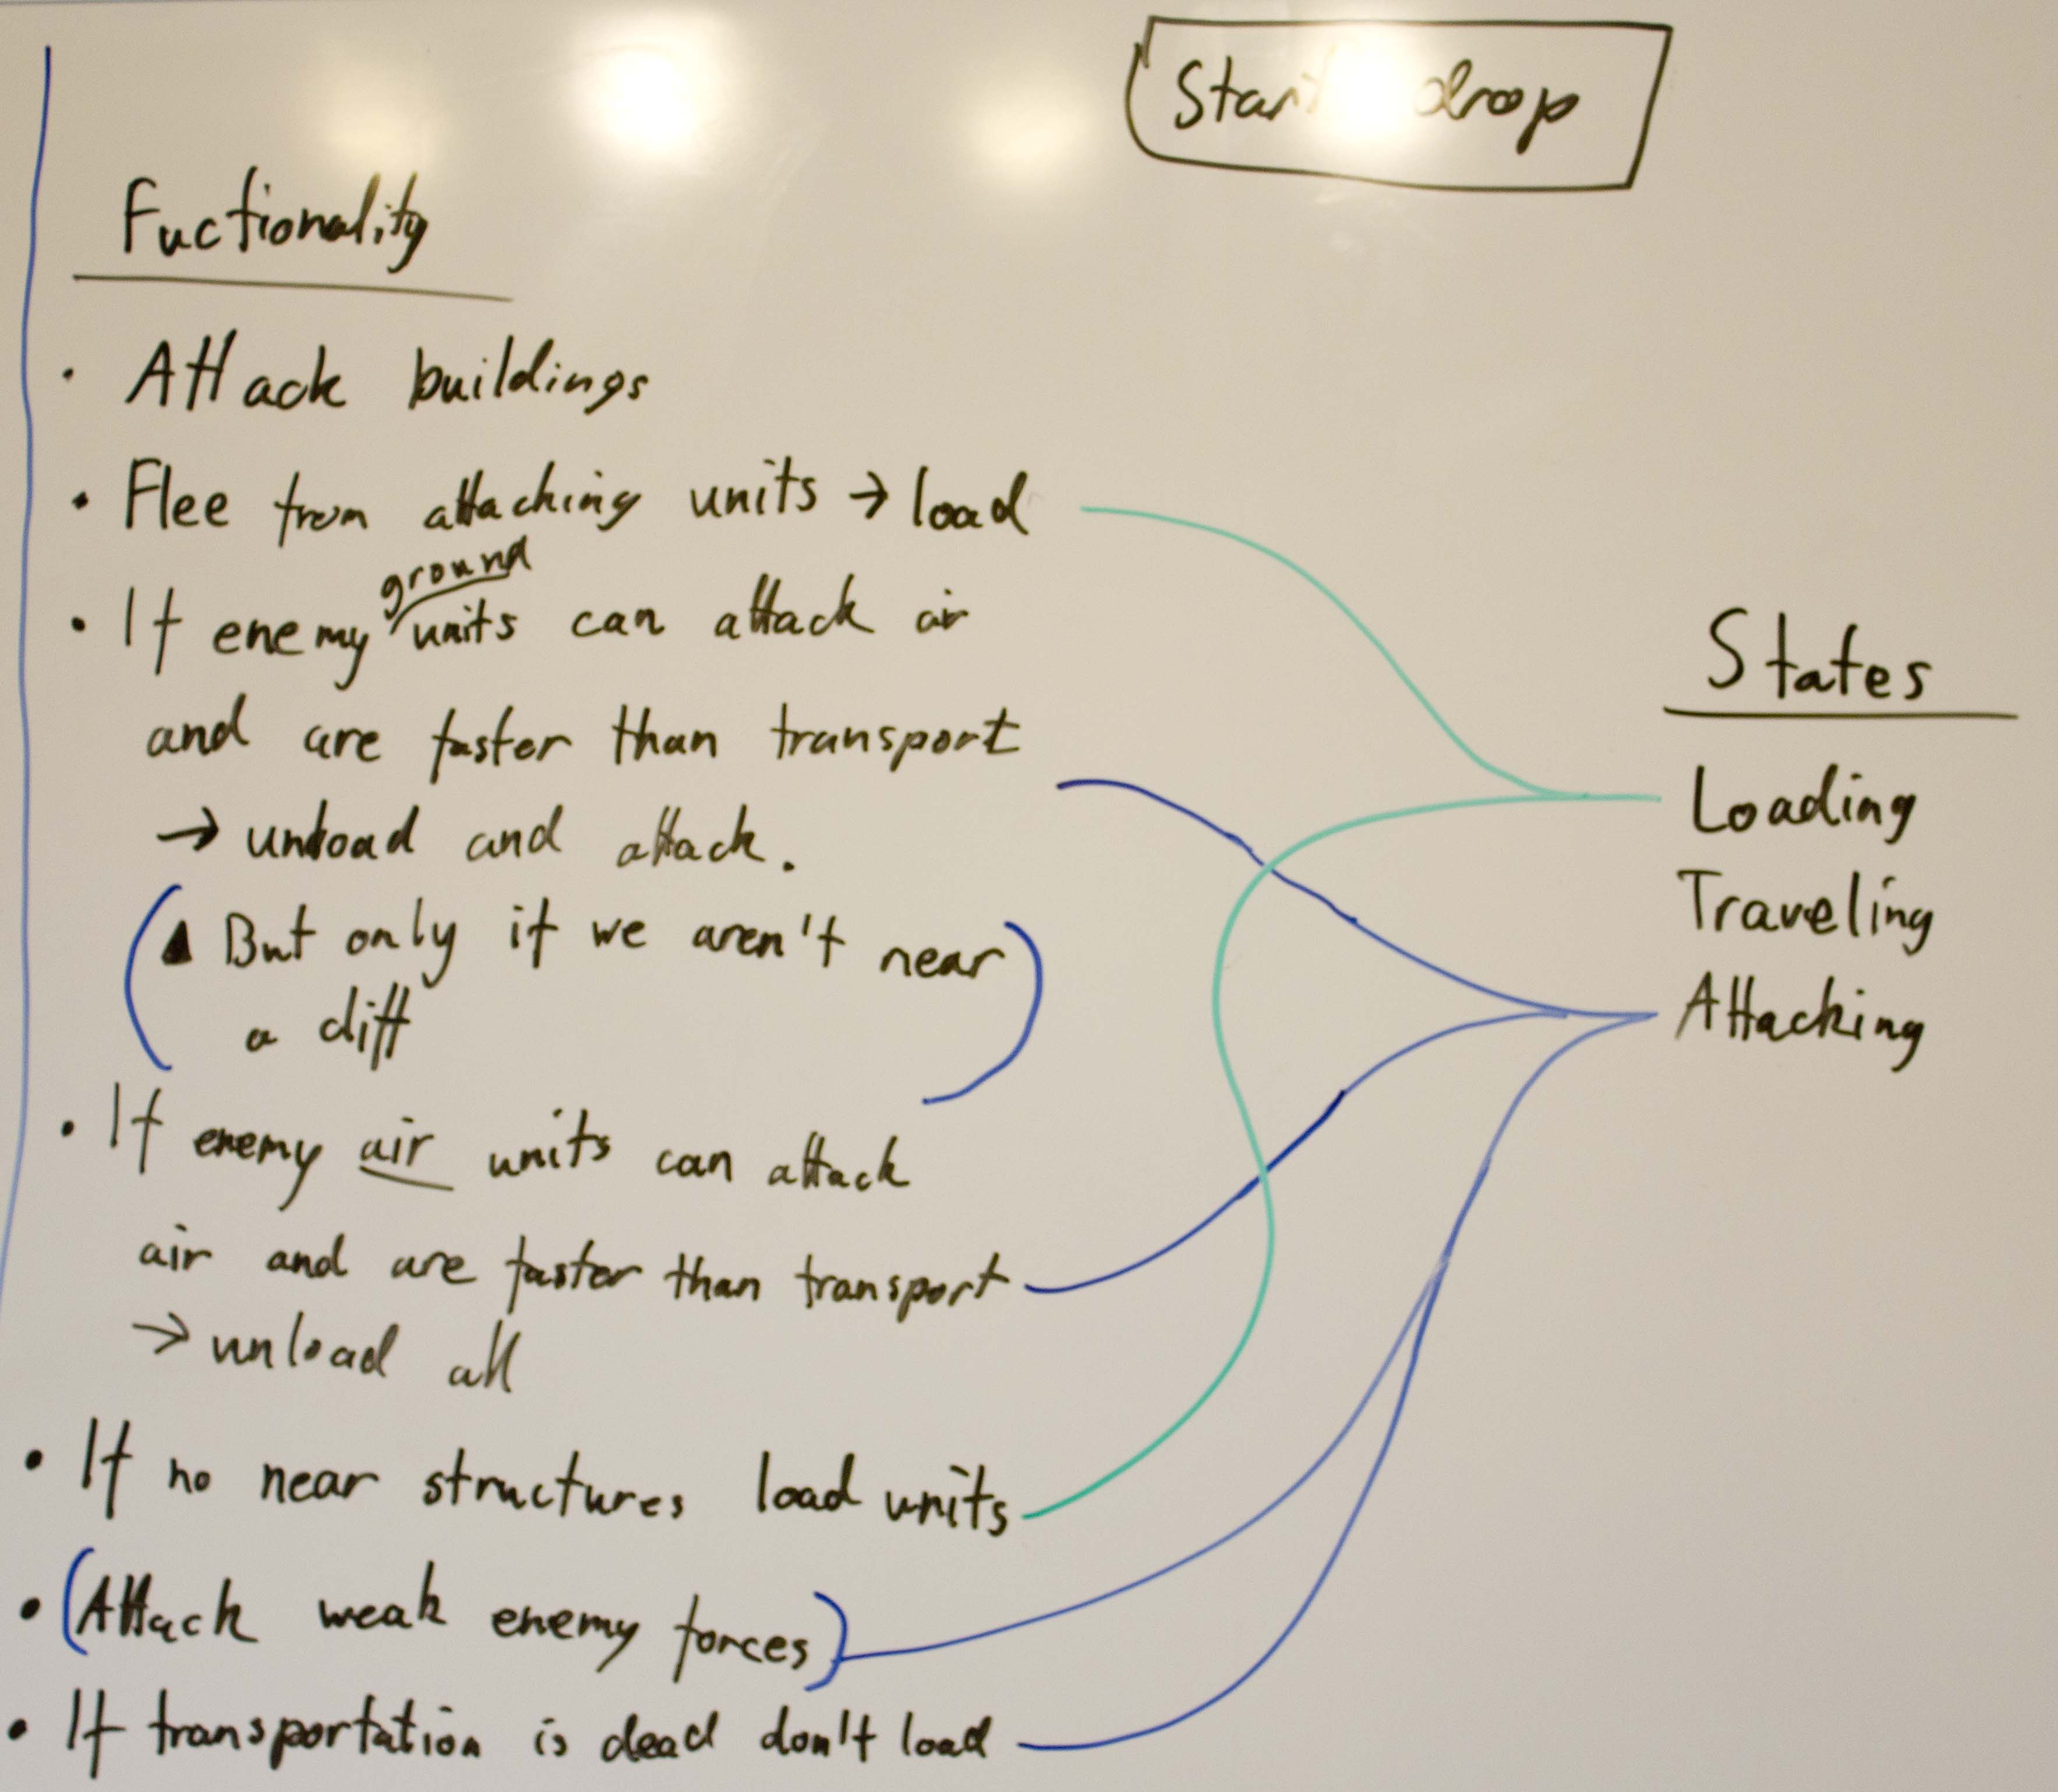 Start drop
Fuctionality
• Attack buildings
• Flee from attacking units → load
ground
• If enemy units can attack air
and are faster than transport
→ unload and attack.
(▲ But only if we aren't near
a diff)
• If enemy air units can attack
air and are faster than transport
→ unload all
• If no near structures load units
• (Attack weak enemy forces)
• If transportation is dead don't load
States
Loading
Traveling
Attacking